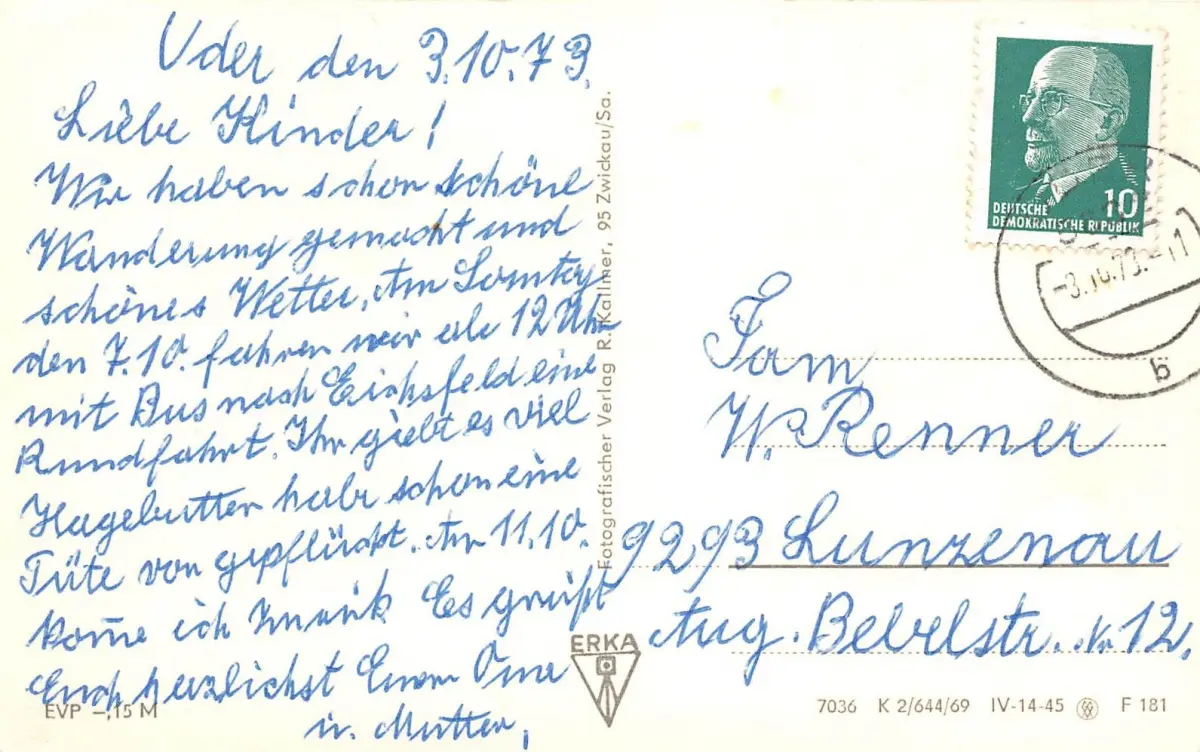 Uder den 3.10.73.
Liebe Kinder!
Wir haben schon schöne
Wanderung gemacht und
schönes Wetter, Am Sonntag
den 7.10. fahren wir ab 12 Uhr
mit Bus nach Eichsfeld eine
Rundfahrt. Ihr giebt es viel
Hagebutten habe schon eine
Tüte von gepflückt. Am 11.10.
kome ich zurück Es grüßt
Euch herzlichst Eure Oma
u. Mutter,
EVP –,15 M
Fotografischer Verlag R. Kallmer, 95 Zwickau/Sa.
ERKA
10
DEUTSCHE
DEMOKRATISCHE REPUBLIK
-3.10.73.-11
b
Fam
W. Renner
9293 Lunzenau
Aug. Bebelstr. Nr 12.
7036 K 2/644/69 IV-14-45 F 181